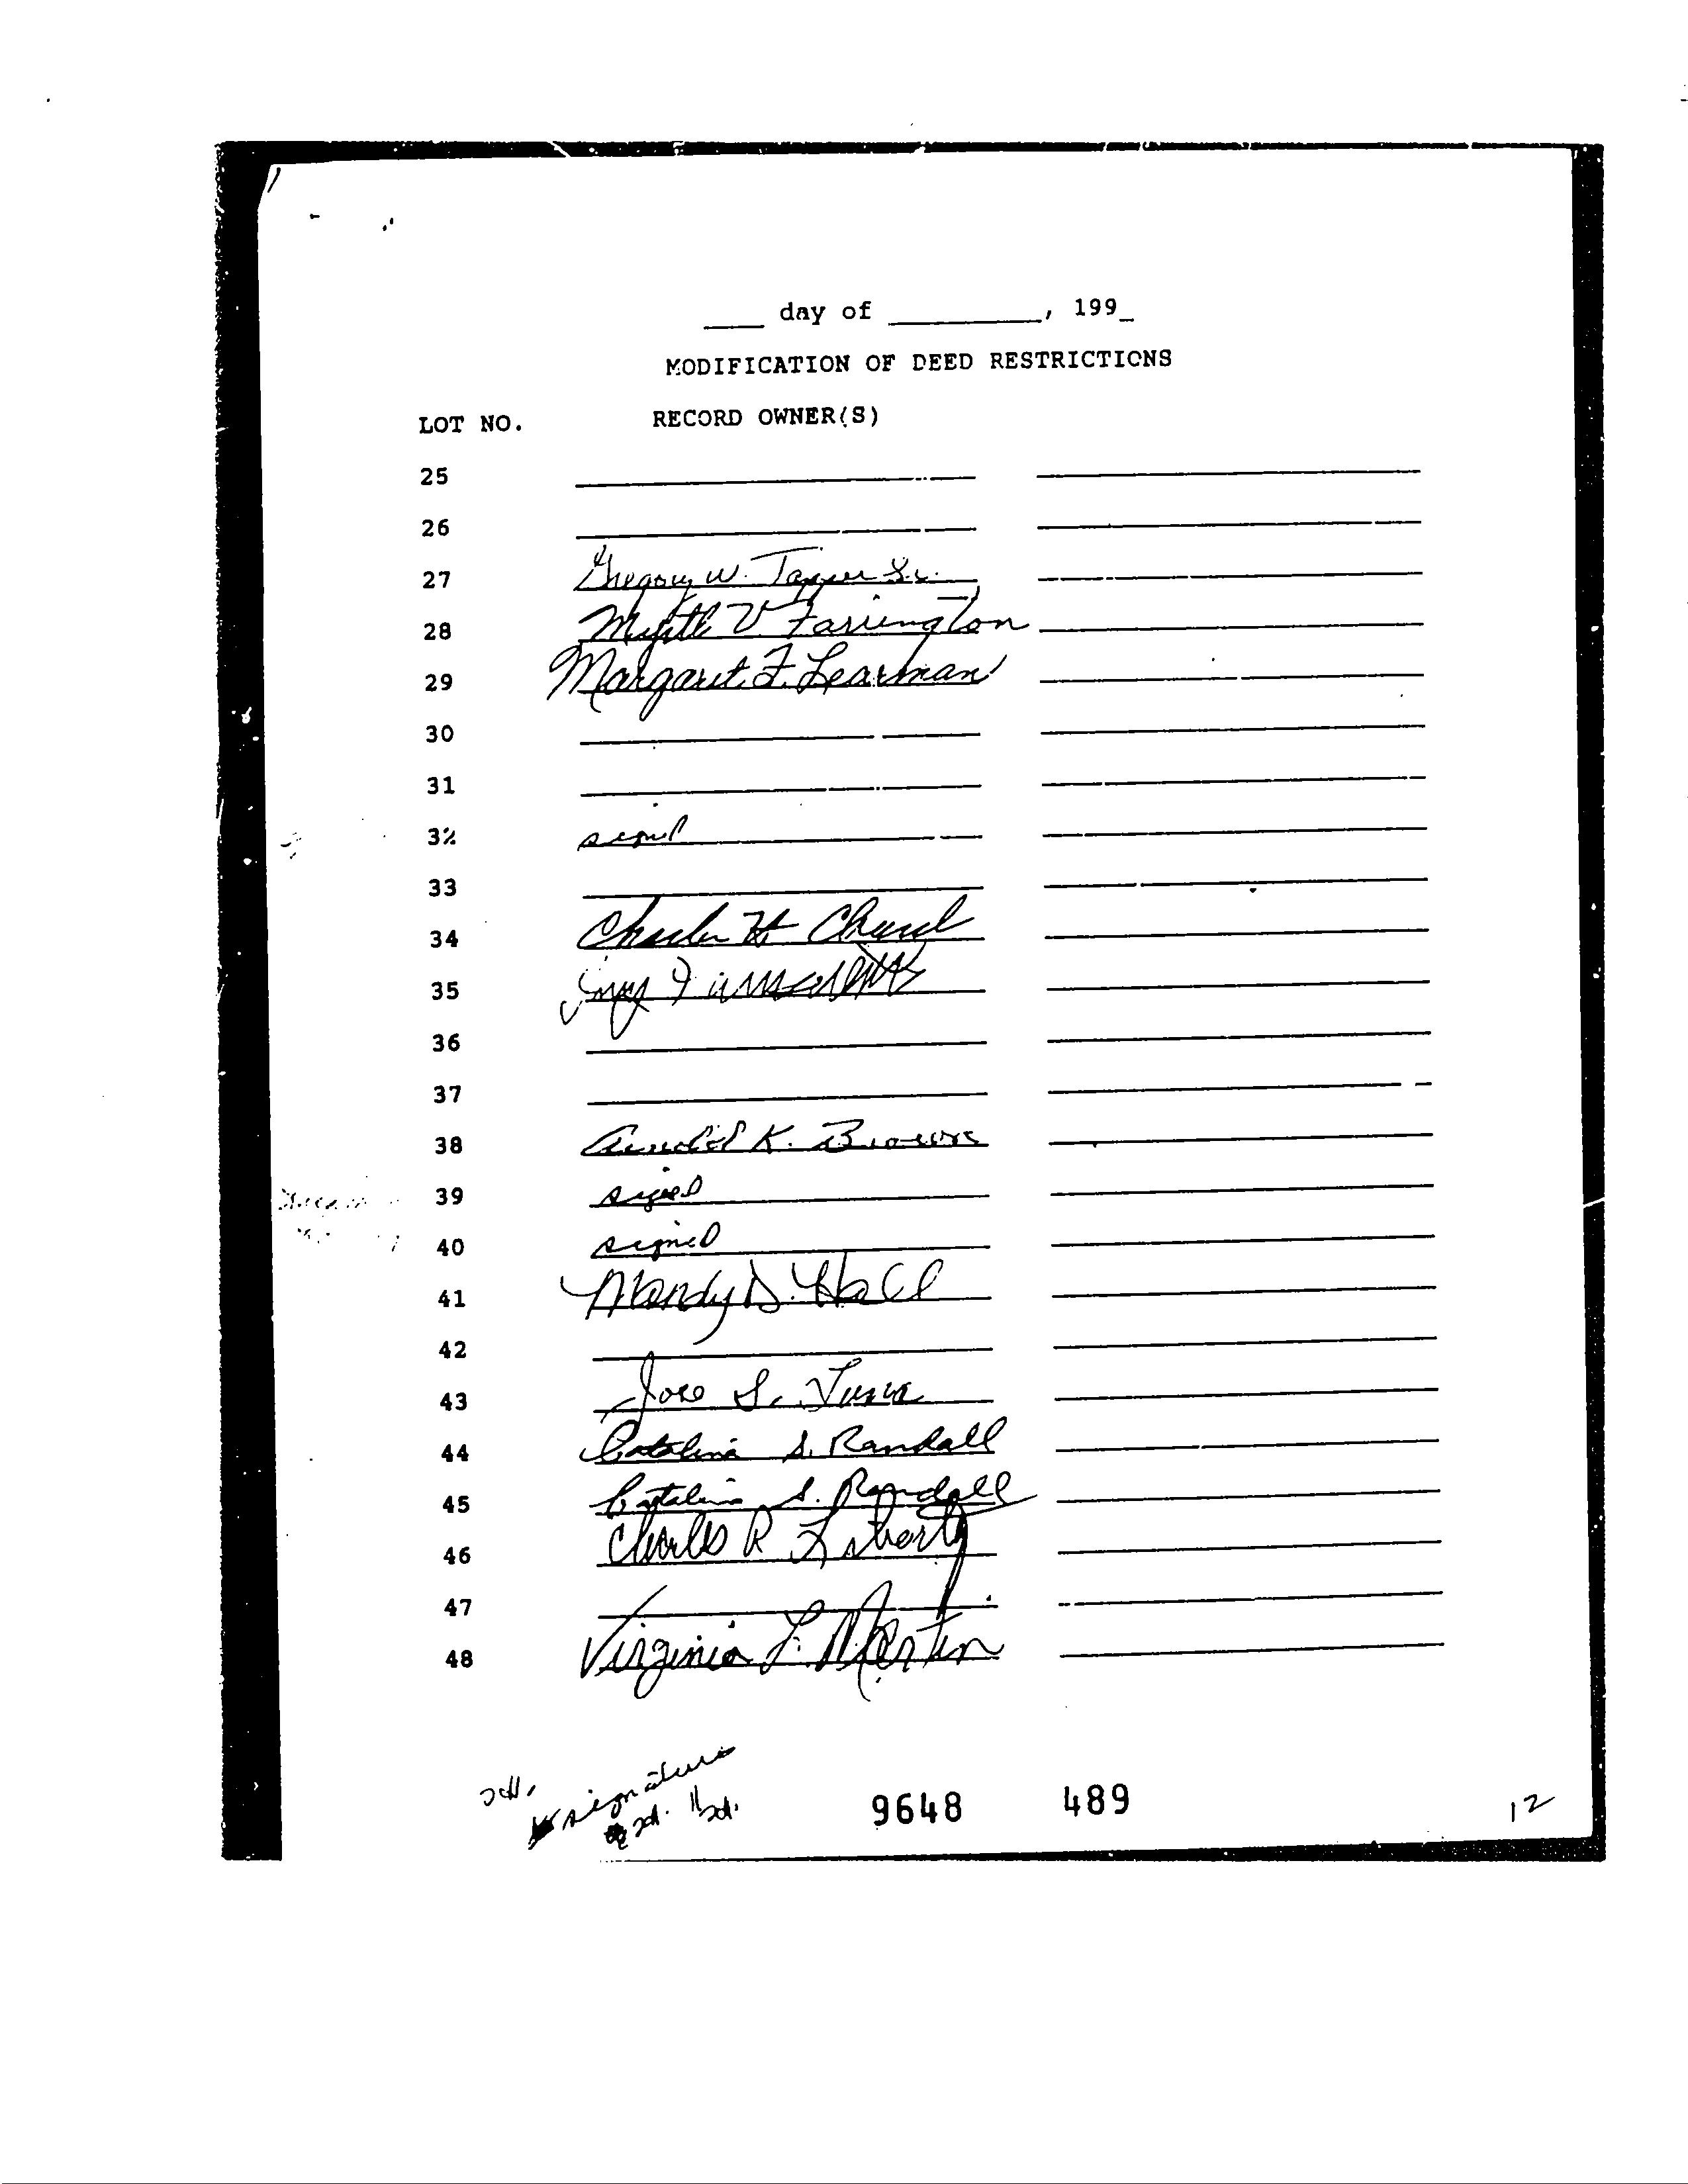 ____ day of __________, 199_
MODIFICATION OF DEED RESTRICTIONS
LOT NO. RECORD OWNER(S)
25
26
27 Gregory W. Sr.
28 Myrtle V. Farrington
29 Margaret F. Learman
30
31
32 signed
33
34 Charles H
35
36
37
38 K. Brown
39 signed
40 signed
41 D. Hall
42
43 Jose S.
44 Catalina S. Randall
45 Catalina S. Randall
46 Charles R Liberty
47
48 Virginia L. Martin
signature
9648 489
12